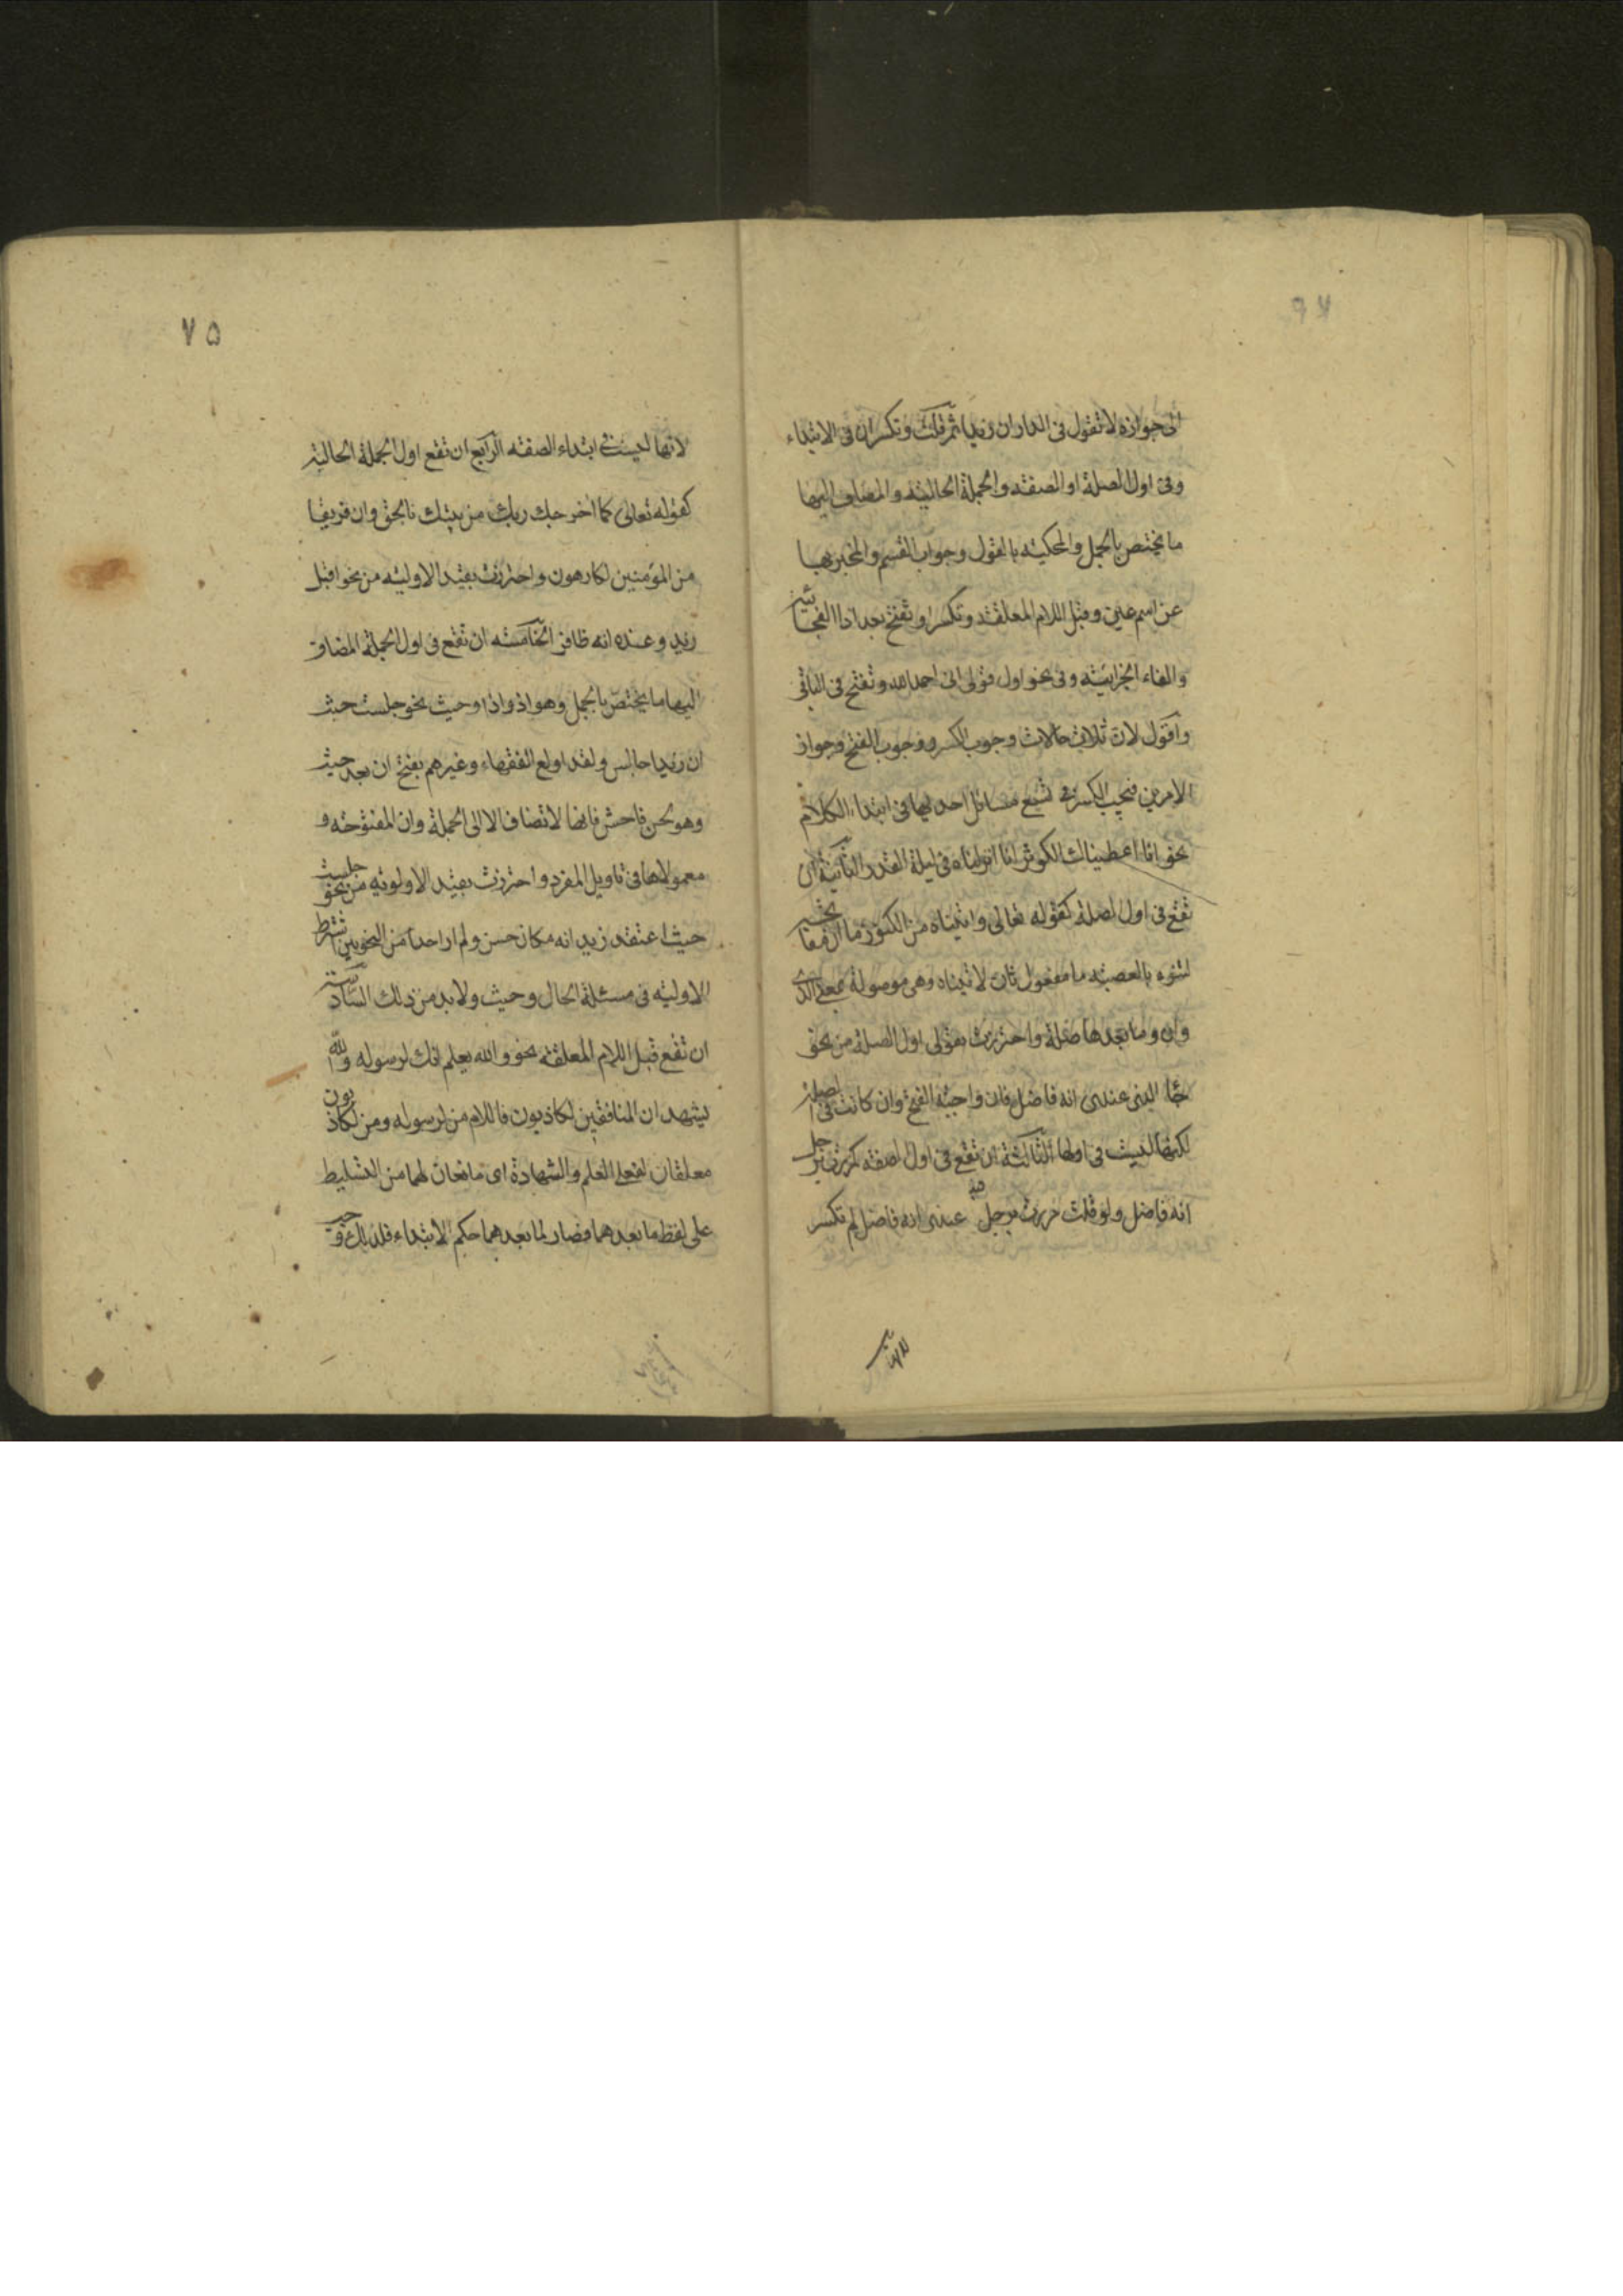 الى جوازه لا تقول فى الدار ان زيدا ثم قلت وتكسران فى الابتداء
وفى اول الصلة او الصفته والجملة الحالية والمضاف اليها
ما يختص بالجمل والمحكية بالقول وجواب القسم والمخبر بها
عن اسم عين وقبل اللام المعلقة وتكسر او تفتح بعد اذا الفجائية
والفاء الجزائية وفى نحو اول قولى انى احمد الله وتفتح فى الباقى
واقول لان ثلاث حالات وجوب الكسر ووجوب الفتح وجواز
الامرين فيجب الكسر فى تسع مسائل احديها فى ابتداء الكلام
نحو انا اعطيناك الكوثر انا انزلناه فى ليلة القدر الثانية ان
تقع فى اول الصلة كقوله تعالى واتيناه من الكنوز ما ان مفاتحه
لتنوء بالعصبة ما مفعول ثان لاتيناه وهى موصولة بمعنى الذى
وان وما بعدها صلة واحترزت بقولى اول الصلة من نحو
جاء الذى عندى انه فاضل فان واجبة الفتح وان كانت فى الصلة
لكنها ليست فى اولها الثالثة ان تقع فى اول الصفة كمررت برجل
انه فاضل ولو قلت مررت برجل عندى انه فاضل لم تكسر
٧٥
لانها ليست فى ابتداء الصفته الرابع ان تقع اول الجملة الحالية
كقوله تعالى كما اخرجك ربك من بيتك بالحق وان فريقا
من المؤمنين لكارهون واحترزت بقيد الاولية من نحو اقبل
زيد وعنده انه ظافر الخامسة ان تقع فى اول الجملة المضاف
اليها ما يختص بالجمل وهو اذ واذا وحيث نحو جلست حيث
ان زيدا جالس ولقد اولع الفقهاء وغيرهم بفتح ان بعد حيث
وهو لحن فاحش فانها لا تضاف الا الى الجملة وان المفتوحة و
معمولاها فى تاويل المفرد واحترزت بقيد الاولوية من نحو جلست
حيث اعتقد زيد انه مكان حسن ولم ار احدا من النحويين اشترط
الاولية فى مسئلة الحال وحيث ولا بد من ذلك السادسة
ان تقع قبل اللام المعلقة نحو والله يعلم انك لرسوله والله
يشهد ان المنافقين لكاذبون فاللام من لرسوله ومن لكاذبون
معلقان لفعلى العلم والشهادة اى مانعان لهما من التسليط
على لفظ ما بعدهما فصار لما بعدهما حكم الابتداء فلذلك وجب